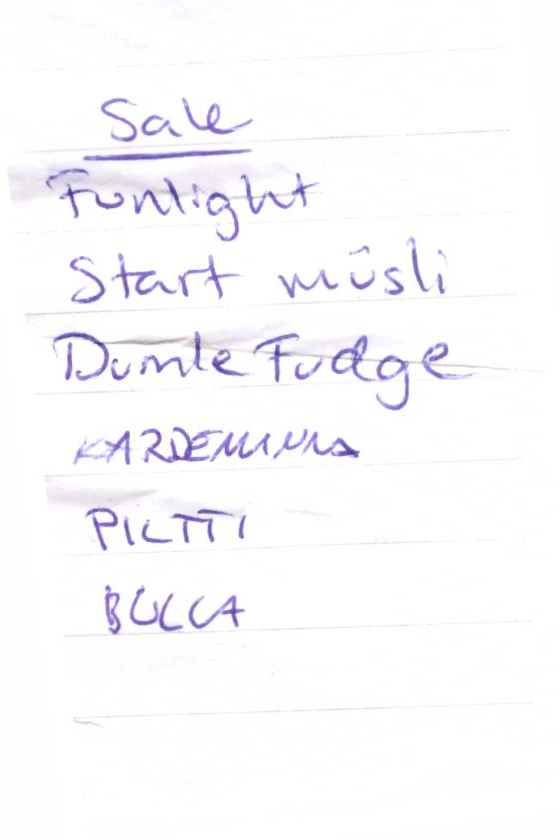 Sale
Funlight
Start müsli
Dumle Fudge
KARDEMUMMA
PILTTI
BULLA